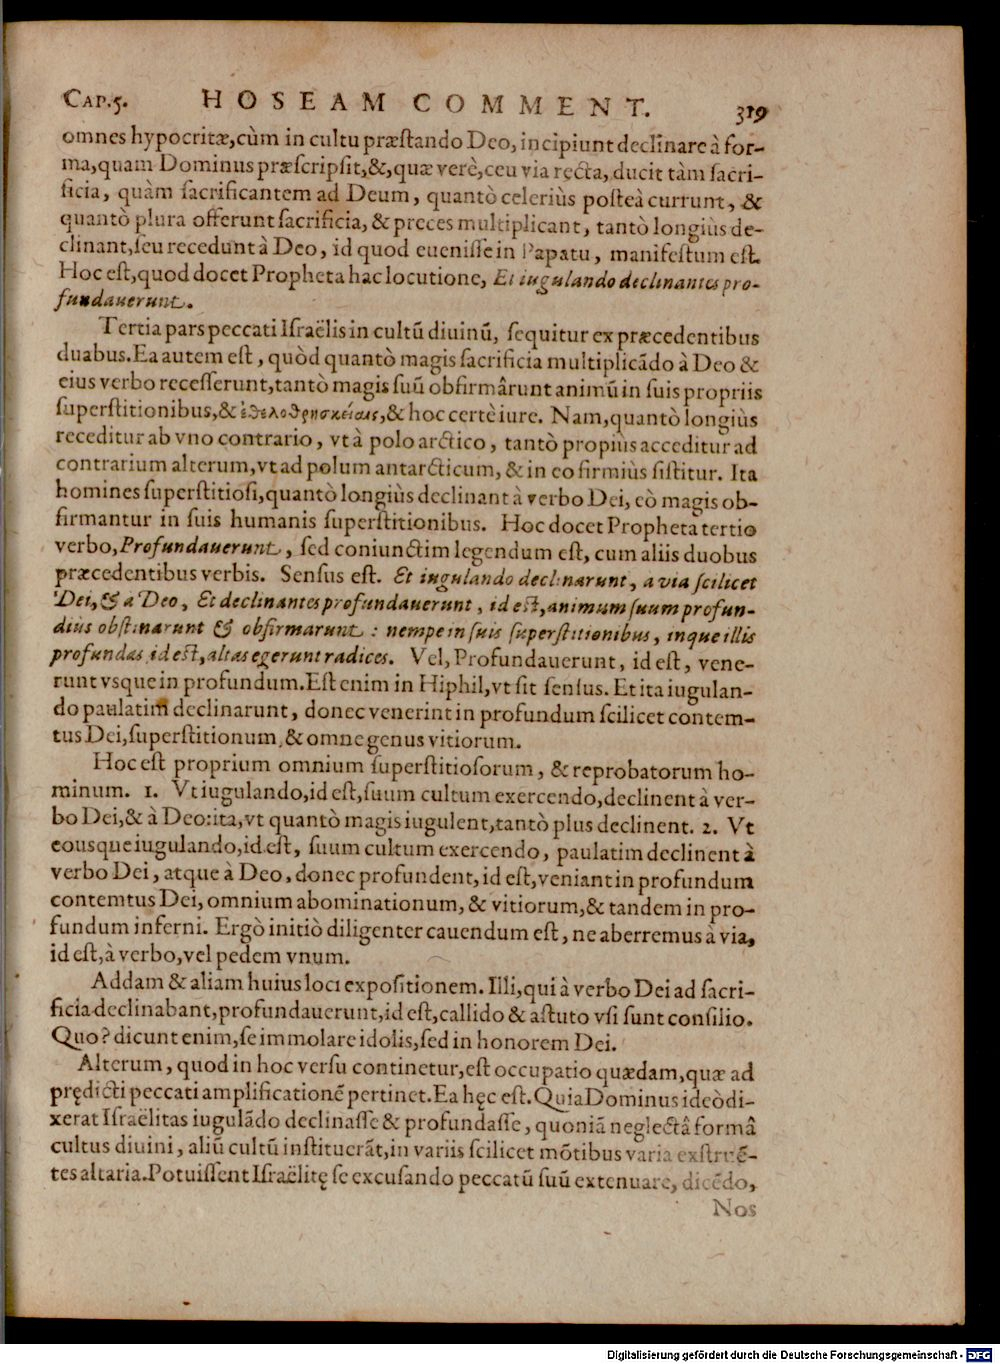 CAP.5. HOSEAM COMMENT. 319
omnes hypocritæ, cùm in cultu præstando Deo, incipiunt declinare à for-
ma, quam Dominus præscripsit, &, quæ verè, ceu via recta, ducit tàm sacri-
ficia, quàm sacrificantem ad Deum, quantò celeriùs posteà currunt, &
quantò plura offerunt sacrificia, & preces multiplicant, tantò longiùs de-
clinant, seu recedunt à Deo, id quod euenisse in Papatu, manifestum est.
Hoc est, quod docet Propheta hac locutione, Et iugulando declinantes pro-
fundauerunt.
Tertia pars peccati Israëlis in cultū diuinū, sequitur ex præcedentibus
duabus. Ea autem est, quòd quantò magis sacrificia multiplicādo à Deo &
eius verbo recesserunt, tantò magis suū obfirmârunt animū in suis propriis
superstitionibus, & ἐθελοθρησκείαις, & hoc certè iure. Nam, quantò longiùs
receditur ab vno contrario, vt à polo arctico, tantò propiùs acceditur ad
contrarium alterum, vt ad polum antarcticum, & in eo firmiùs sistitur. Ita
homines superstitiosi, quantò longiùs declinant à verbo Dei, eò magis ob-
firmantur in suis humanis superstitionibus. Hoc docet Propheta tertio
verbo, Profundauerunt, sed coniunctim legendum est, cum aliis duobus
præcedentibus verbis. Sensus est. Et iugulando declinarunt, a via scilicet
Dei, & a Deo, Et declinantes profundauerunt, id est, animum suum profun-
dius obstinarunt & obfirmarunt: nempe in suis superstitionibus, inque illis
profundas id est, altas egerunt radices. Vel, Profundauerunt, id est, vene-
runt vsque in profundum. Est enim in Hiphil, vt sit sensus. Et ita iugulan-
do paulatim declinarunt, donec venerint in profundum scilicet contem-
tus Dei, superstitionum, & omne genus vitiorum.
Hoc est proprium omnium superstitiosorum, & reprobatorum ho-
minum. 1. Vt iugulando, id est, suum cultum exercendo, declinent à ver-
bo Dei, & à Deo: ita, vt quantò magis iugulent, tantò plus declinent. 2. Vt
eousque iugulando, id est, suum cultum exercendo, paulatim declinent à
verbo Dei, atque à Deo, donec profundent, id est, veniant in profundum
contemtus Dei, omnium abominationum, & vitiorum, & tandem in pro-
fundum inferni. Ergò initiò diligenter cauendum est, ne aberremus à via,
id est, à verbo, vel pedem vnum.
Addam & aliam huius loci expositionem. Illi, qui à verbo Dei ad sacri-
ficia declinabant, profundauerunt, id est, callido & astuto vsi sunt consilio.
Quo? dicunt enim, se immolare idolis, sed in honorem Dei.
Alterum, quod in hoc versu continetur, est occupatio quædam, quæ ad
prędicti peccati amplificationē pertinet. Ea hęc est. Quia Dominus ideò di-
xerat Israëlitas iugulādo declinasse & profundasse, quoniā neglectâ formâ
cultus diuini, aliū cultū instituerāt, in variis scilicet mōtibus varia exstruē-
tes altaria. Potuissent Israëlitę se excusando peccatū suū extenuare, dicēdo,
Nos
Digitalisierung gefördert durch die Deutsche Forschungsgemeinschaft - DFG